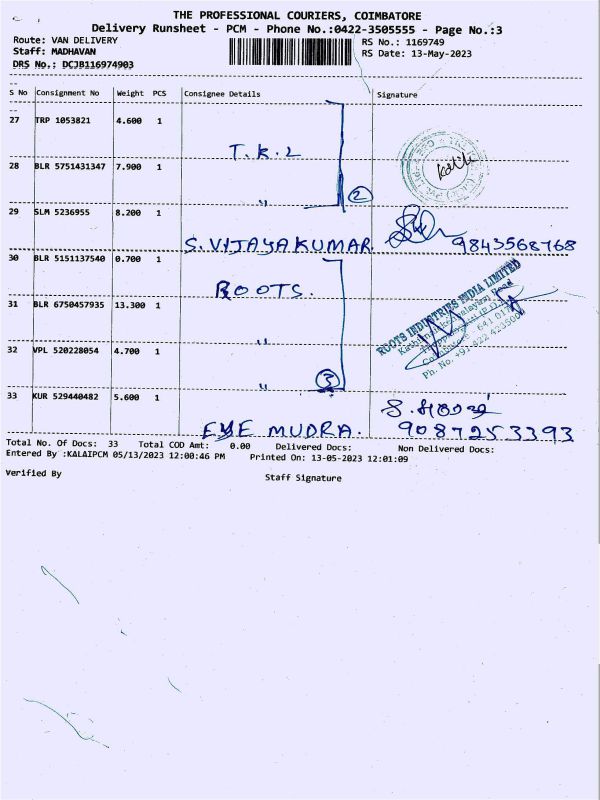 THE PROFESSIONAL COURIERS, COIMBATORE
Delivery Runsheet - PCM - Phone No.:0422-3505555 - Page No.:3
Route: VAN DELIVERY RS No.: 1169749
Staff: MADHAVAN RS Date: 13-May-2023
DRS No.: DCJB116974903
S No Consignment No Weight PCS Consignee Details Signature
27 TRP 1053821 4.600 1
T.K.L
28 BLR 5751431347 7.900 1
" 2
29 SLM 5236955 8.200 1
S.VIJAYAKUMAR. 9843568768
30 BLR 5151137540 0.700 1
ROOTS.
ROOTS INDUSTRIES INDIA LIMITED
31 BLR 6750457935 13.300 1
"
32 VPL 520228054 4.700 1
" 3
33 KUR 529440482 5.600 1
EYE MUDRA. 9087253393
Total No. Of Docs: 33 Total COD Amt: 0.00 Delivered Docs: Non Delivered Docs:
Entered By :KALAIPCM 05/13/2023 12:00:46 PM Printed On: 13-05-2023 12:01:09
Verified By Staff Signature